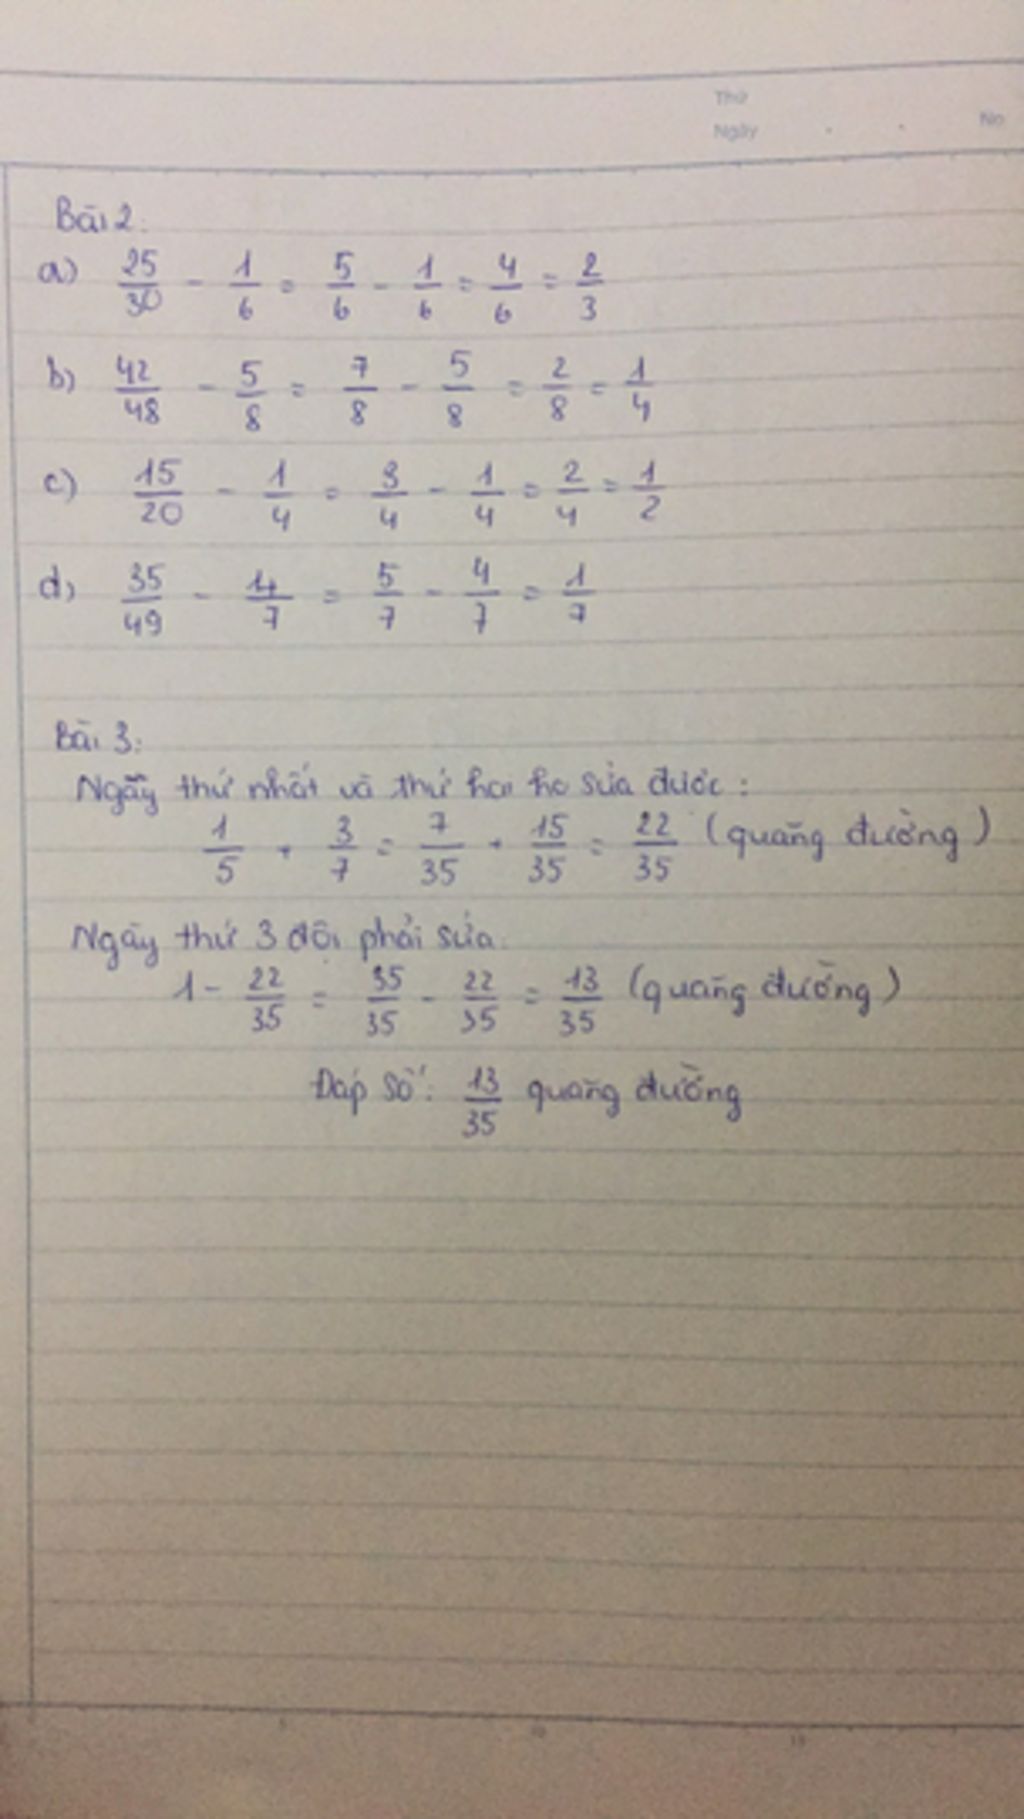 Thứ
Ngày No
Bài 2:
a) 25/30 - 1/6 = 5/6 - 1/6 = 4/6 = 2/3
b) 42/48 - 5/8 = 7/8 - 5/8 = 2/8 = 1/4
c) 15/20 - 1/4 = 3/4 - 1/4 = 2/4 = 1/2
d) 35/49 - 4/7 = 5/7 - 4/7 = 1/7
Bài 3:
Ngày thứ nhất và thứ hai họ sửa được:
1/5 + 3/7 = 7/35 + 15/35 = 22/35 (quãng đường)
Ngày thứ 3 đội phải sửa:
1 - 22/35 = 35/35 - 22/35 = 13/35 (quãng đường)
Đáp số: 13/35 quãng đường
5 10 15